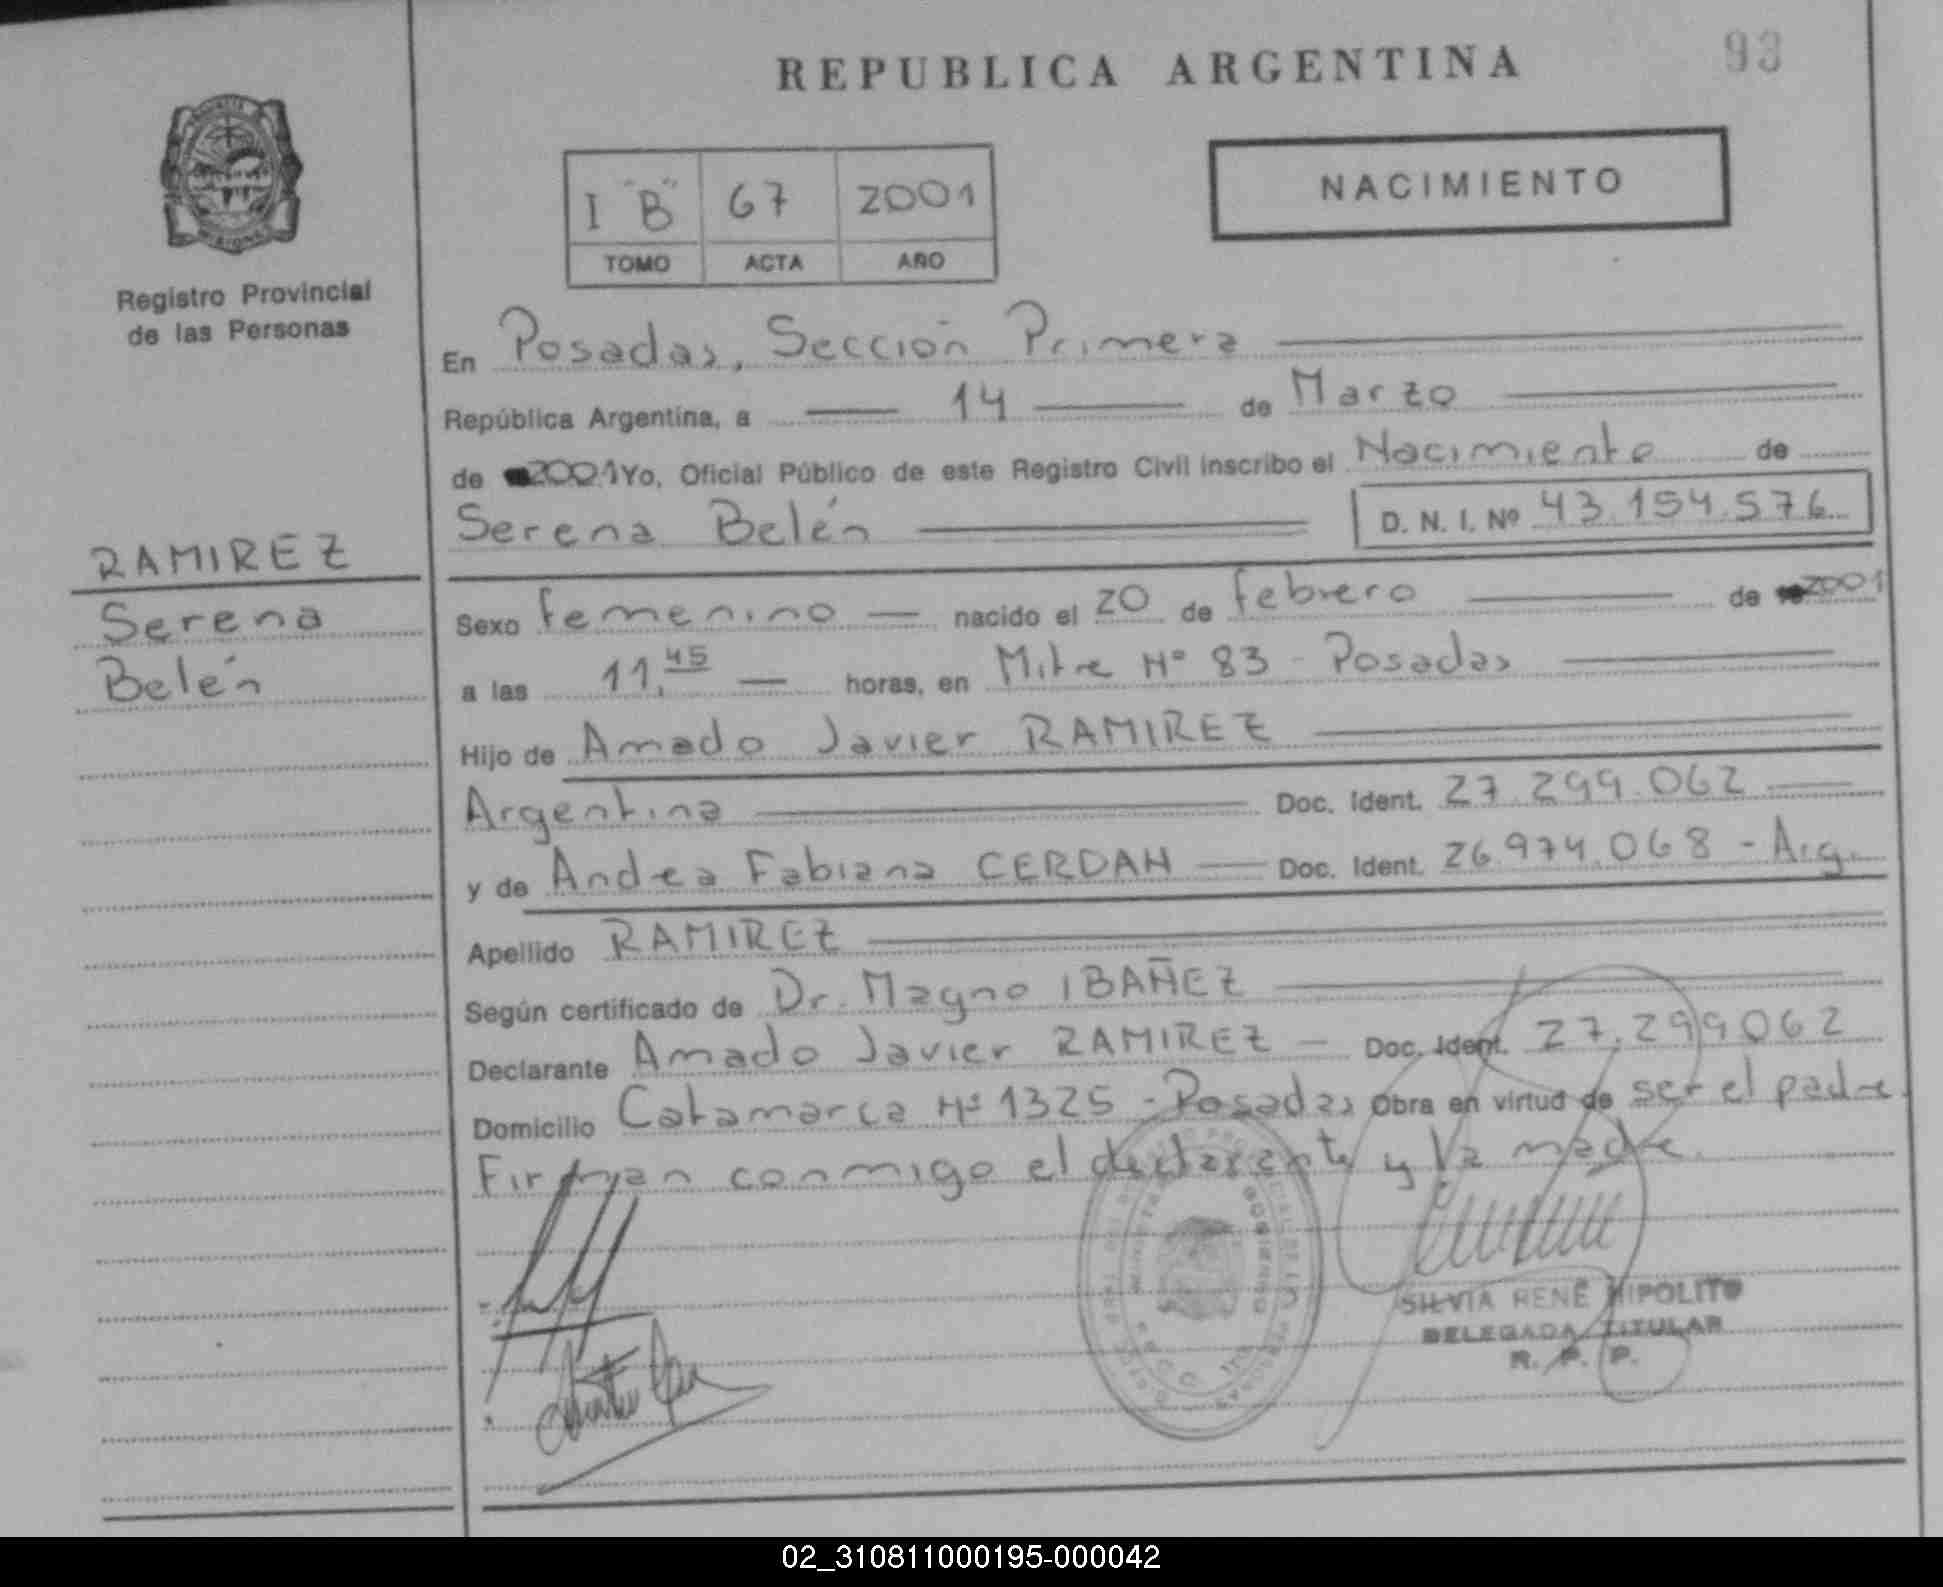 REPUBLICA ARGENTINA
93
I "B" 67 2001
TOMO ACTA AÑO
NACIMIENTO
Registro Provincial
de las Personas
En Posadas, Sección Primera
República Argentina, a 14 de Marzo
de 2001 Yo, Oficial Público de este Registro Civil inscribo el Nacimiento de
Serena Belén D. N. I. Nº 43.154.576
RAMIREZ
Serena
Belén
Sexo femenino nacido el 20 de febrero de 2001
a las 11,45 horas, en Mitre Nº 83 - Posadas
Hijo de Amado Javier RAMIREZ
Argentina Doc. Ident. 27.299.062
y de Andrea Fabiana CERDAN Doc. Ident. 26.974.068 - Arg.
Apellido RAMIREZ
Según certificado de Dr. Magno IBAÑEZ
Declarante Amado Javier RAMIREZ Doc. Ident. 27.299062
Domicilio Catamarca Nº 1325 - Posadas Obra en virtud de ser el padre.
Firman conmigo el declarante y la madre.
SILVIA RENÉ HIPOLITO
DELEGADA TITULAR
R. P. P.
02_310811000195-000042